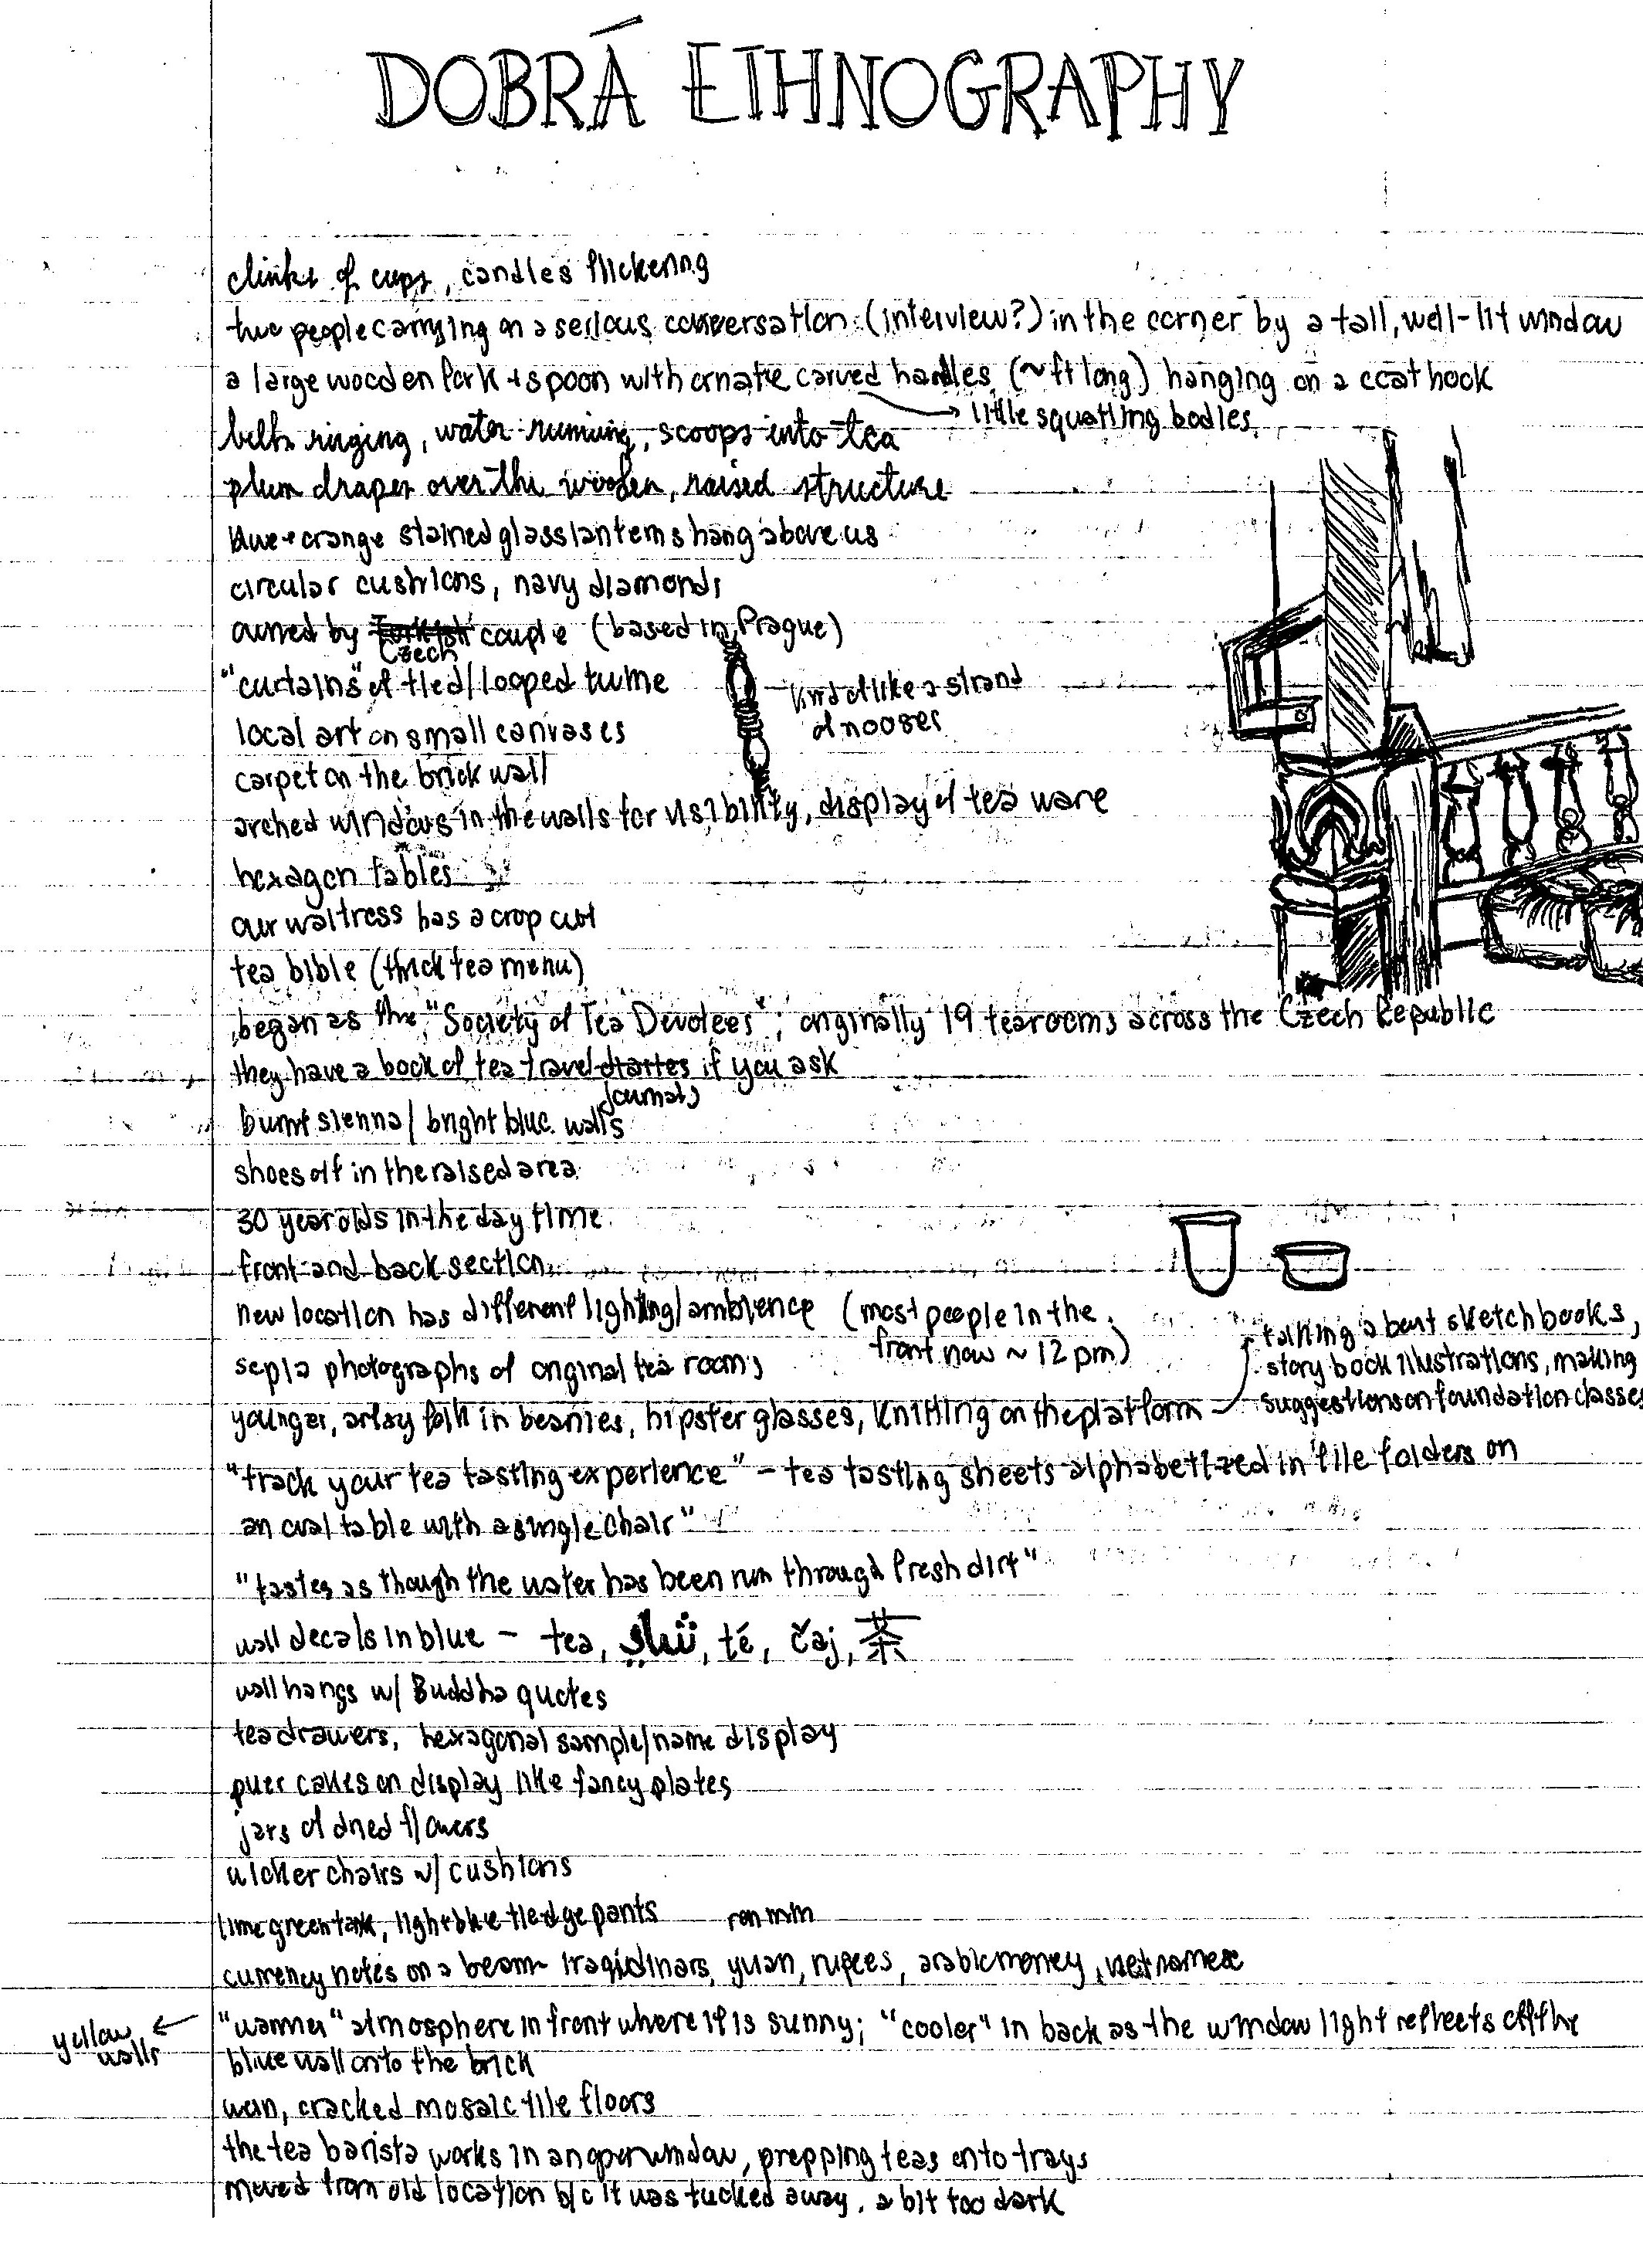 DOBRÁ ETHNOGRAPHY
clinks of cups, candles flickering
two people carrying on a serious conversation (interview?) in the corner by a tall, well-lit window
a large wooden fork + spoon with ornate carved handles (~ft long) hanging on a coat hook
little squatting bodies
bells ringing, water running, scoops into tea
plum drapes over the wooden, raised structure
blue + orange stained glass lanterns hang above us
circular cushions, navy diamonds
owned by Turkish couple (based in Prague)
Czech
"curtains" of tied/looped twine
kind of like a strand
of nooses
local art on small canvases
carpet on the brick wall
arched windows in the walls for visibility, display of tea ware
hexagon tables
our waitress has a crop cut
tea bible (thick tea menu)
began as the "Society of Tea Devotees"; originally 19 tearooms across the Czech Republic
they have a book of tea travel diaries if you ask
journals
burnt sienna/bright blue walls
shoes off in the raised area
30 year olds in the day time
front and back section
new location has different lighting/ambience (most people in the
front now ~ 12 pm)
sepia photographs of original tea rooms
talking about sketchbooks,
story book illustrations, making
suggestions on foundation classes
younger, artsy folk in beanies, hipster glasses, knitting on the platform
"track your tea tasting experience" - tea tasting sheets alphabetized in file folders on
an oval table with a single chair"
"tastes as though the water has been run through fresh dirt"
wall decals in blue - tea, té, čaj, 茶
wall hangs w/ Buddha quotes
tea drawers, hexagonal sample/name display
puer cakes on display like fancy plates
jars of dried flowers
wicker chairs w/ cushions
lime green tank, light blue tledge pants
currency notes on a beam - Iraqi dinars, yuan, rupees, arabic money, vietnamese
"warmer" atmosphere in front where it is sunny; "cooler" in back as the window light reflects off the
yellow
walls
blue wall onto the brick
worn, cracked mosaic tile floors
the tea barista works in an open window, prepping teas onto trays
moved from old location b/c it was tucked away, a bit too dark